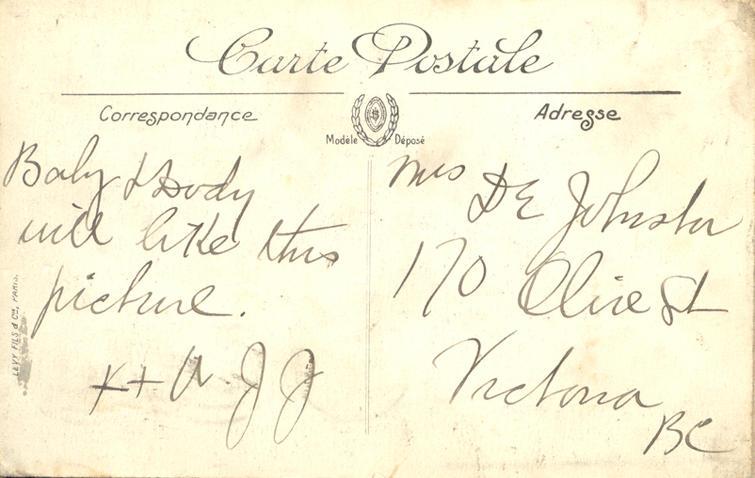 Carte Postale
Correspondance
Adresse
Modèle Déposé
Baby & Dody
will like this
picture.
x + A. J J
LEVY FILS & Cie, PARIS.
Mrs DE Johnston
170 Olive St
Victoria
BC